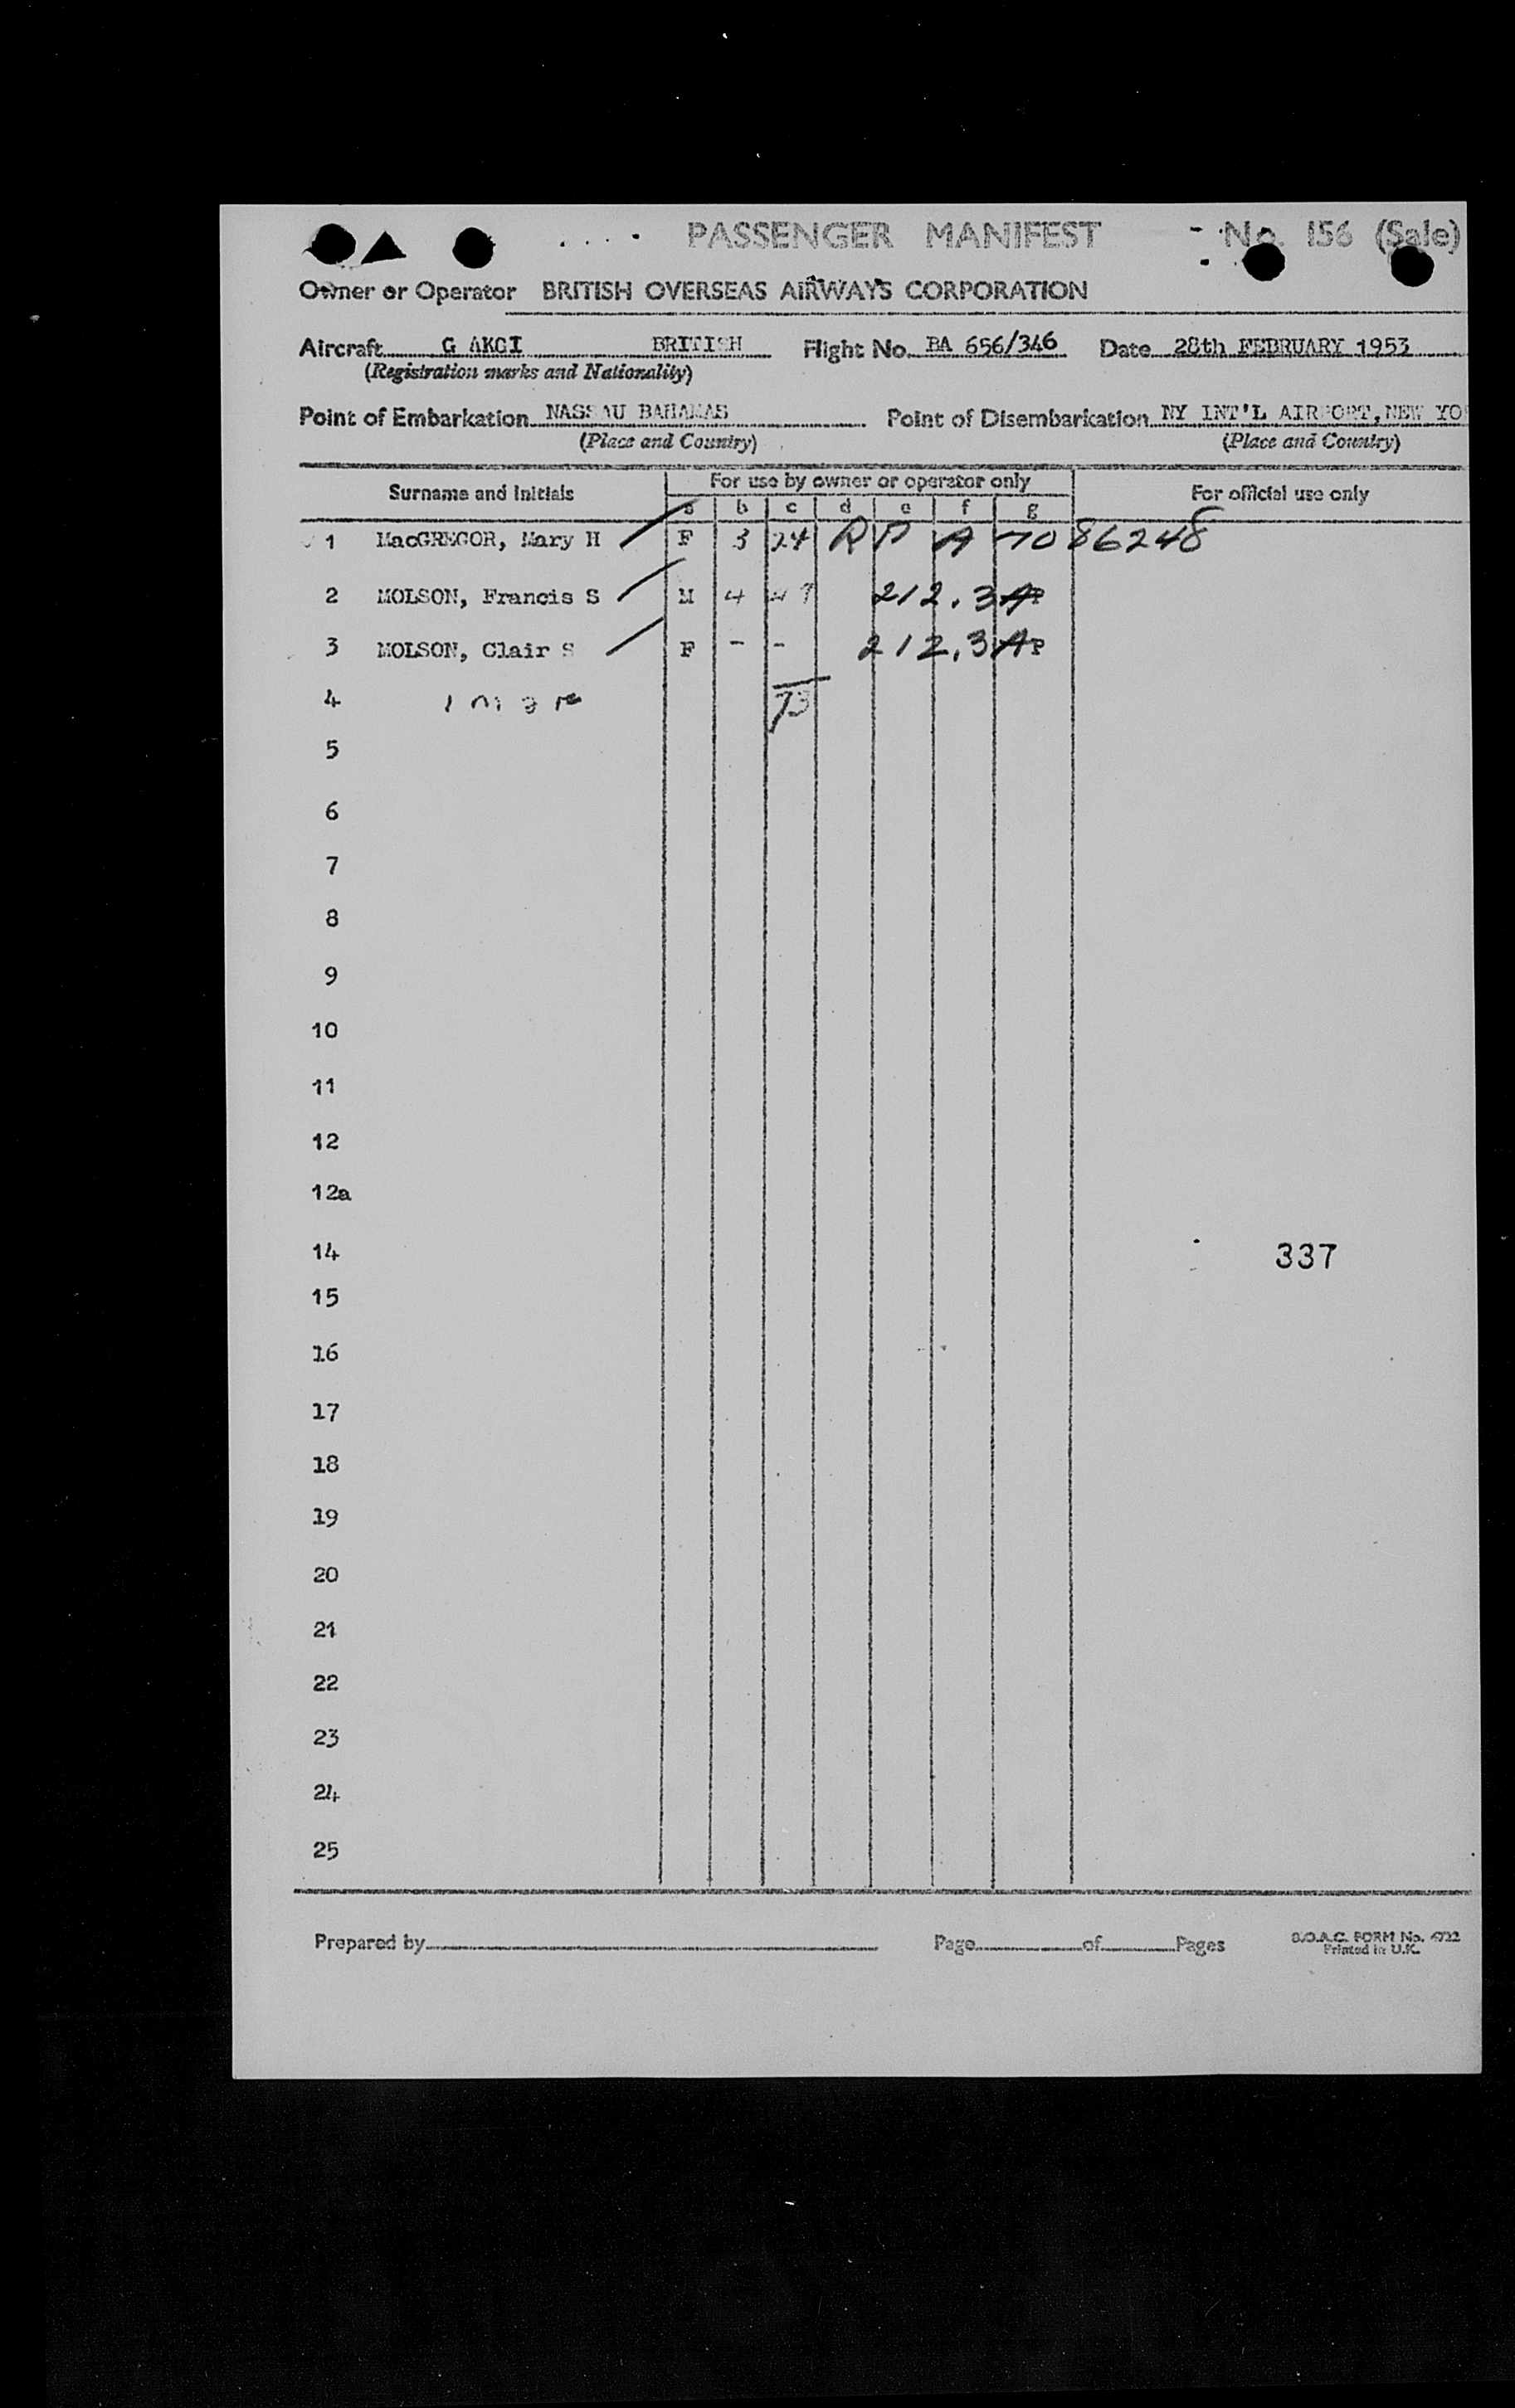 PASSENGER MANIFEST No. 156 (Sale)
Owner or Operator BRITISH OVERSEAS AIRWAYS CORPORATION
Aircraft G AKGI BRITISH Flight No. BA 656/346 Date 28th FEBRUARY 1953
(Registration marks and Nationality)
Point of Embarkation NASSAU BAHAMAS Point of Disembarkation NY INT'L AIRPORT, NEW YO
(Place and Country) (Place and Country)
Surname and Initials For use by owner or operator only For official use only
a b c d e f g
1 MacGREGOR, Mary H F 3 24 R P A 7086248
2 MOLSON, Francis S M 4 49 212.3 A
3 MOLSON, Clair S F - - 212.3 A
4 73
5
6
7
8
9
10
11
12
12a
14 337
15
16
17
18
19
20
21
22
23
24
25
Prepared by Page of Pages B.O.A.C. FORM No. 4722
Printed in U.K.